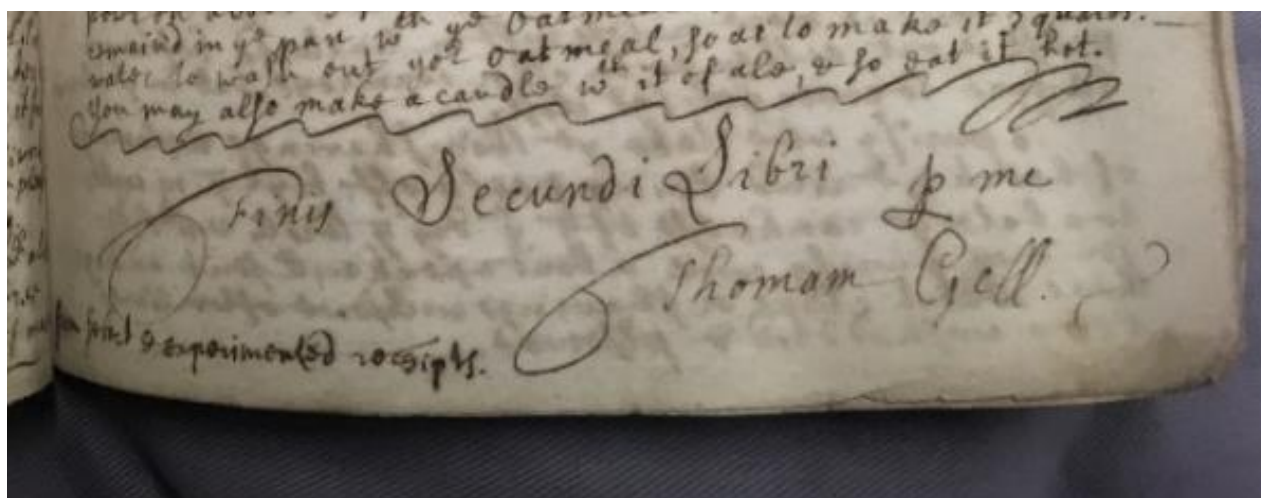 remaind in ye pan wth ye oatmeal
water to wash out yor oatmeal, so as to make it 3 quarts.
You may also make a caudle wth it of ale, & so eat it hot.
Finis Secundi Libri p me
Thomam Gell.
& experimented receipts.